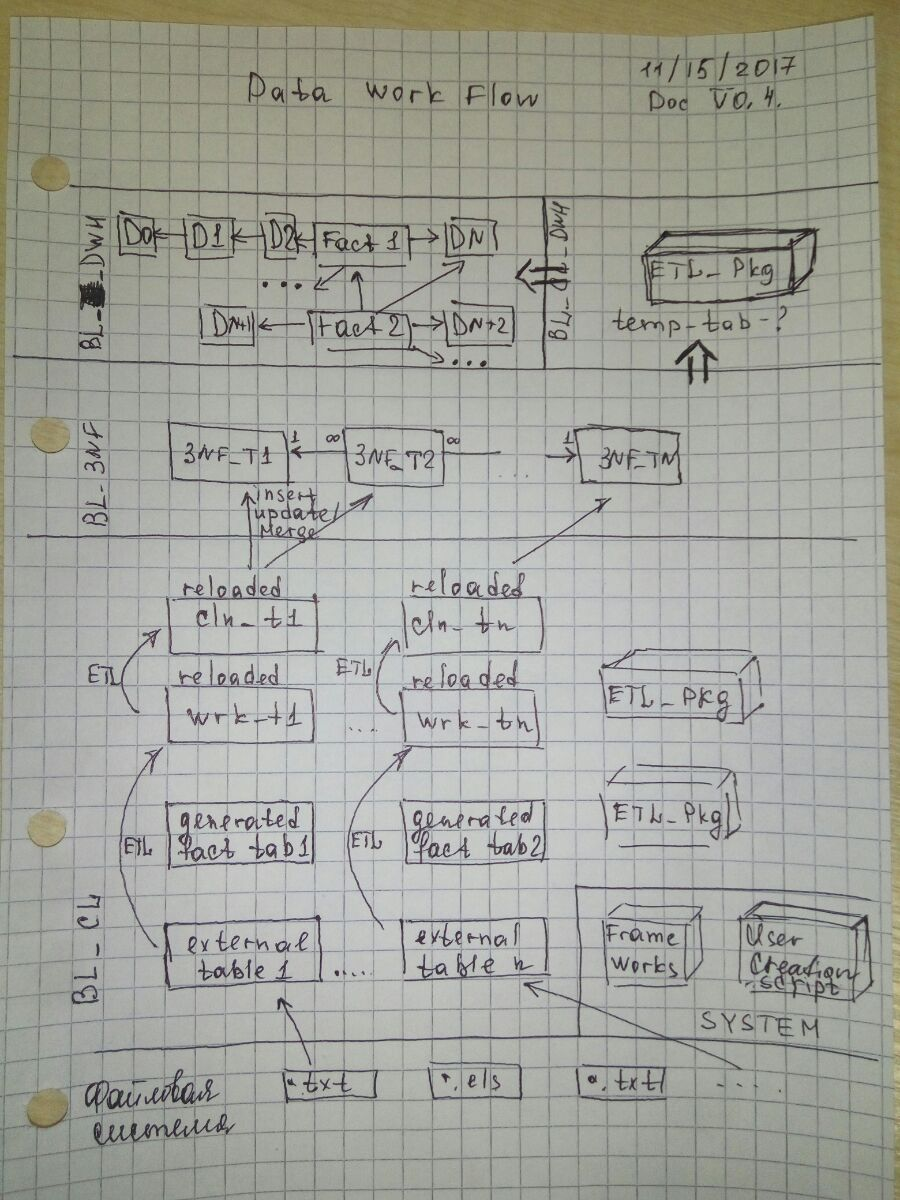 Data Work Flow
11/15/2017
Doc V0.4.
BL_ _DWH
D0
D1
D2
Fact 1
DN
...
DN+1
Fact 2
DN+2
...
BL_CL_DWH
ETL_Pkg
temp-tab-?
BL_3NF
3NF_T1
1
∞
3NF_T2
∞
....
1
3NF_TN
insert/
update/
Merge
reloaded
cln_t1
reloaded
cln_tn
ETL
reloaded
wrk_t1
....
ETL
reloaded
wrk_tn
ETL_Pkg
ETL
generated
fact tab1
ETL
generated
fact tab2
ETL_Pkg
BL_CL
external
table 1
....
external
table n
Frame
works
User
Creation
script
SYSTEM
Файловая
система
*.txt
*.els
*.txt
....